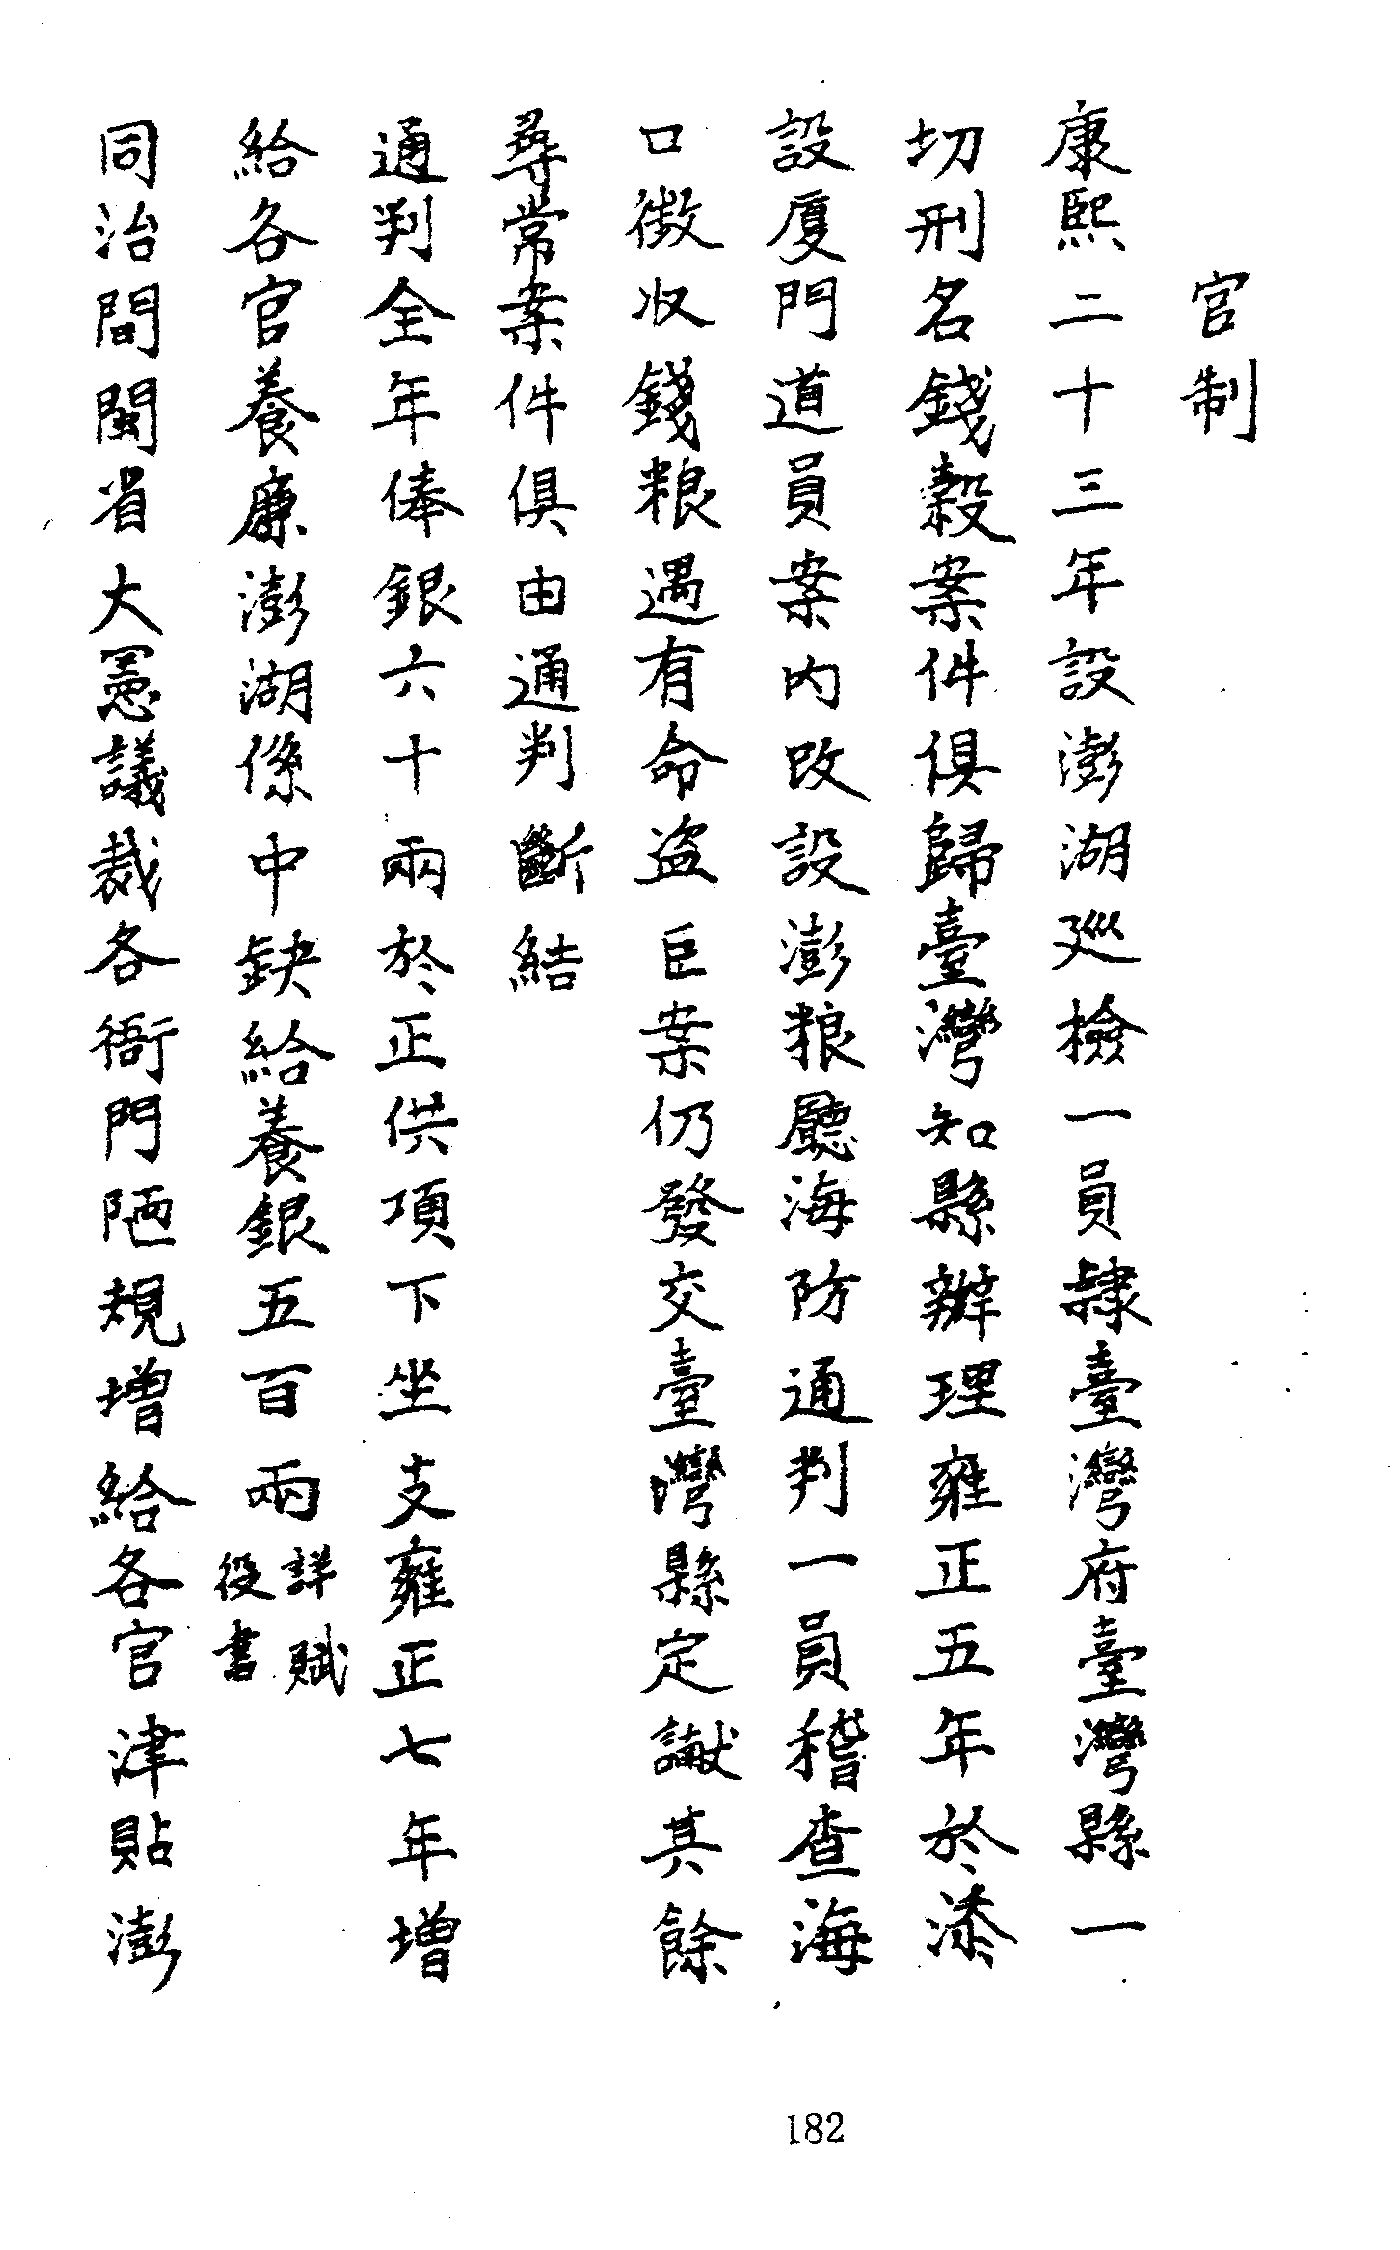 官制
康熙二十三年設澎湖廵檢一員隸臺灣府臺灣縣一
切刑名錢穀案件俱歸臺灣知縣辦理雍正五年於添
設厦門道員案內改設澎粮廳海防通判一員稽查海
口徵収錢粮遇有命盜巨案仍發交臺灣縣定讞其餘
尋常案件俱由通判斷結
通判全年俸銀六十兩於正供項下坐支雍正七年增
給各官養廉澎湖係中缺給養銀五百兩詳賦役書
同治間閩省大憲議裁各衙門陋規增給各官津貼澎
182